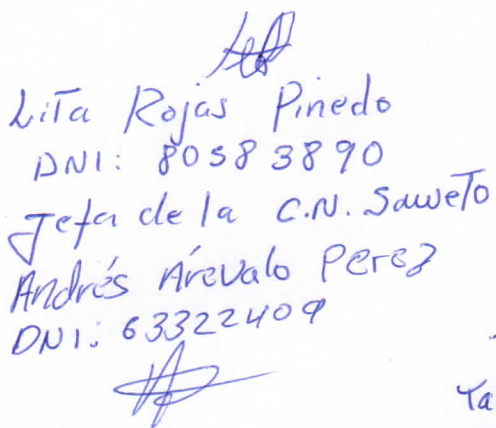 Lita Rojas Pinedo
DNI: 80583890
Jefa de la C.N. Saweto
Andrés Árevalo Perez
DNI: 63322409
Ya